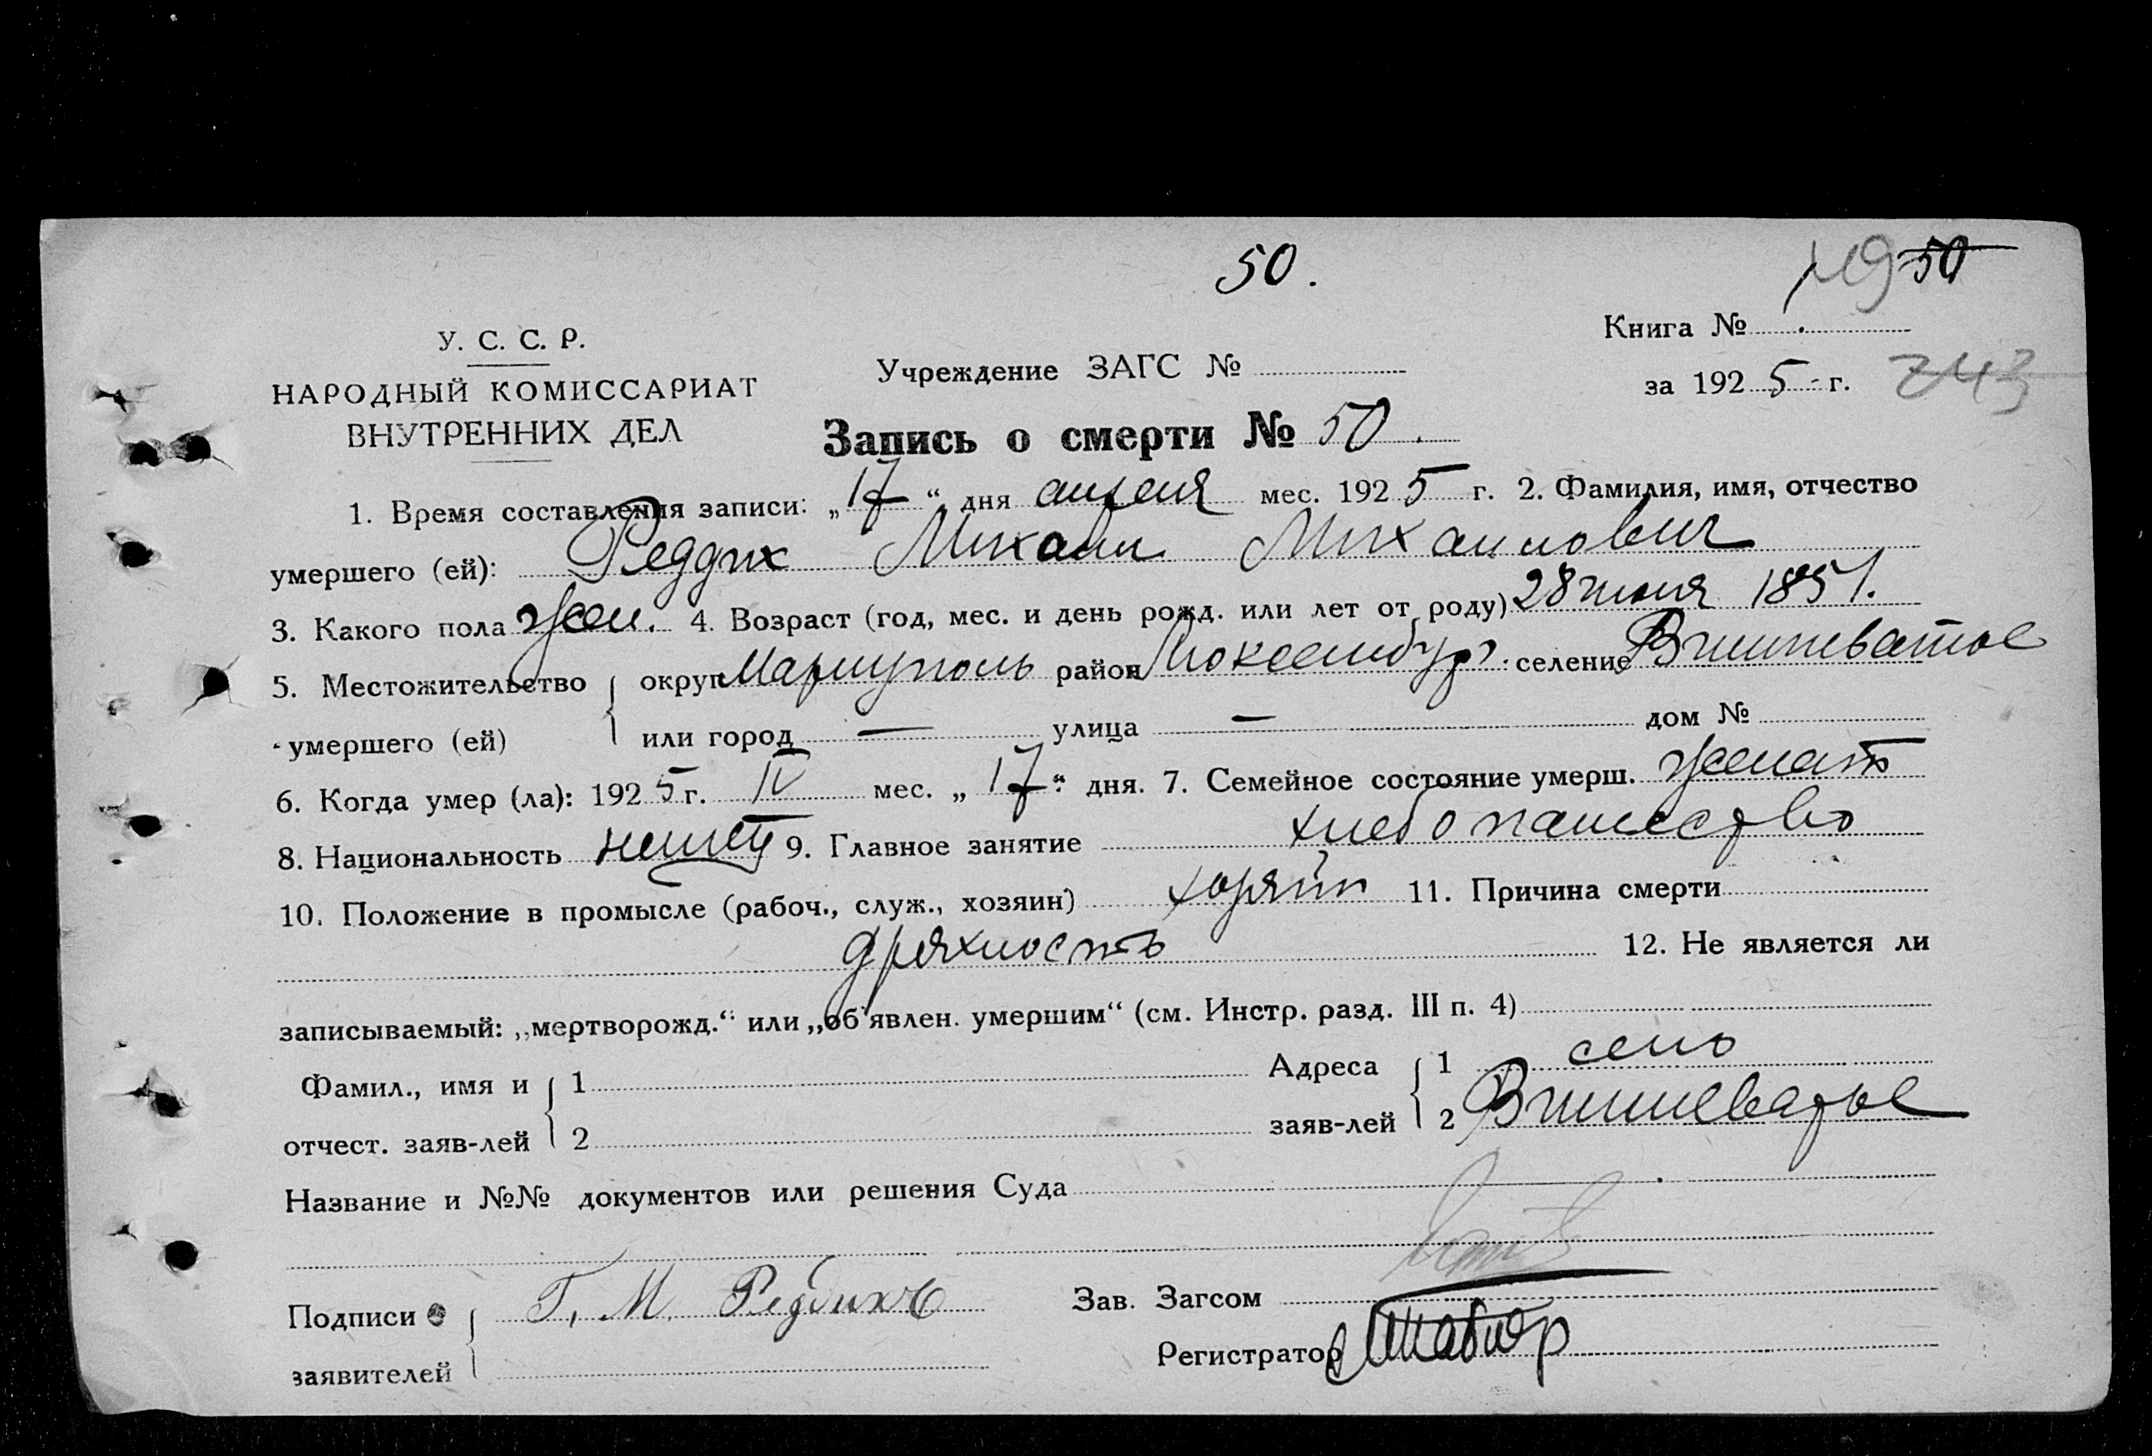 50.
50
У. С. С. Р.
НАРОДНЫЙ КОМИССАРИАТ
ВНУТРЕННИХ ДЕЛ
Учреждение ЗАГС №
Книга №
за 1925 г. 243
Запись о смерти № 50.
1. Время составления записи: „17“ дня апреля мес. 1925 г. 2. Фамилия, имя, отчество
умершего (ей): Реддих Михаил Михаилович
3. Какого пола 4. Возраст (год, мес. и день рожд. или лет от роду) 28 июня 1851.
5. Местожительство округ Мариуполь район Люксембург. селение Вишневатое
умершего (ей) или город — улица — дом №
6. Когда умер (ла): 1925 г. IV мес. „17“ дня. 7. Семейное состояние умерш. женат
8. Национальность немец 9. Главное занятие хлебопашество
10. Положение в промысле (рабоч., служ., хозяин) хозяин 11. Причина смерти
дряхлость 12. Не является ли
записываемый: „мертворожд.“ или „об'явлен. умершим“ (см. Инстр. разд. III п. 4)
Фамил., имя и 1 Адреса 1 село
отчест. заяв-лей 2 заяв-лей 2 Вишневатое
Название и №№ документов или решения Суда
Подписи Г. М. Зав. Загсом
заявителей Регистратор